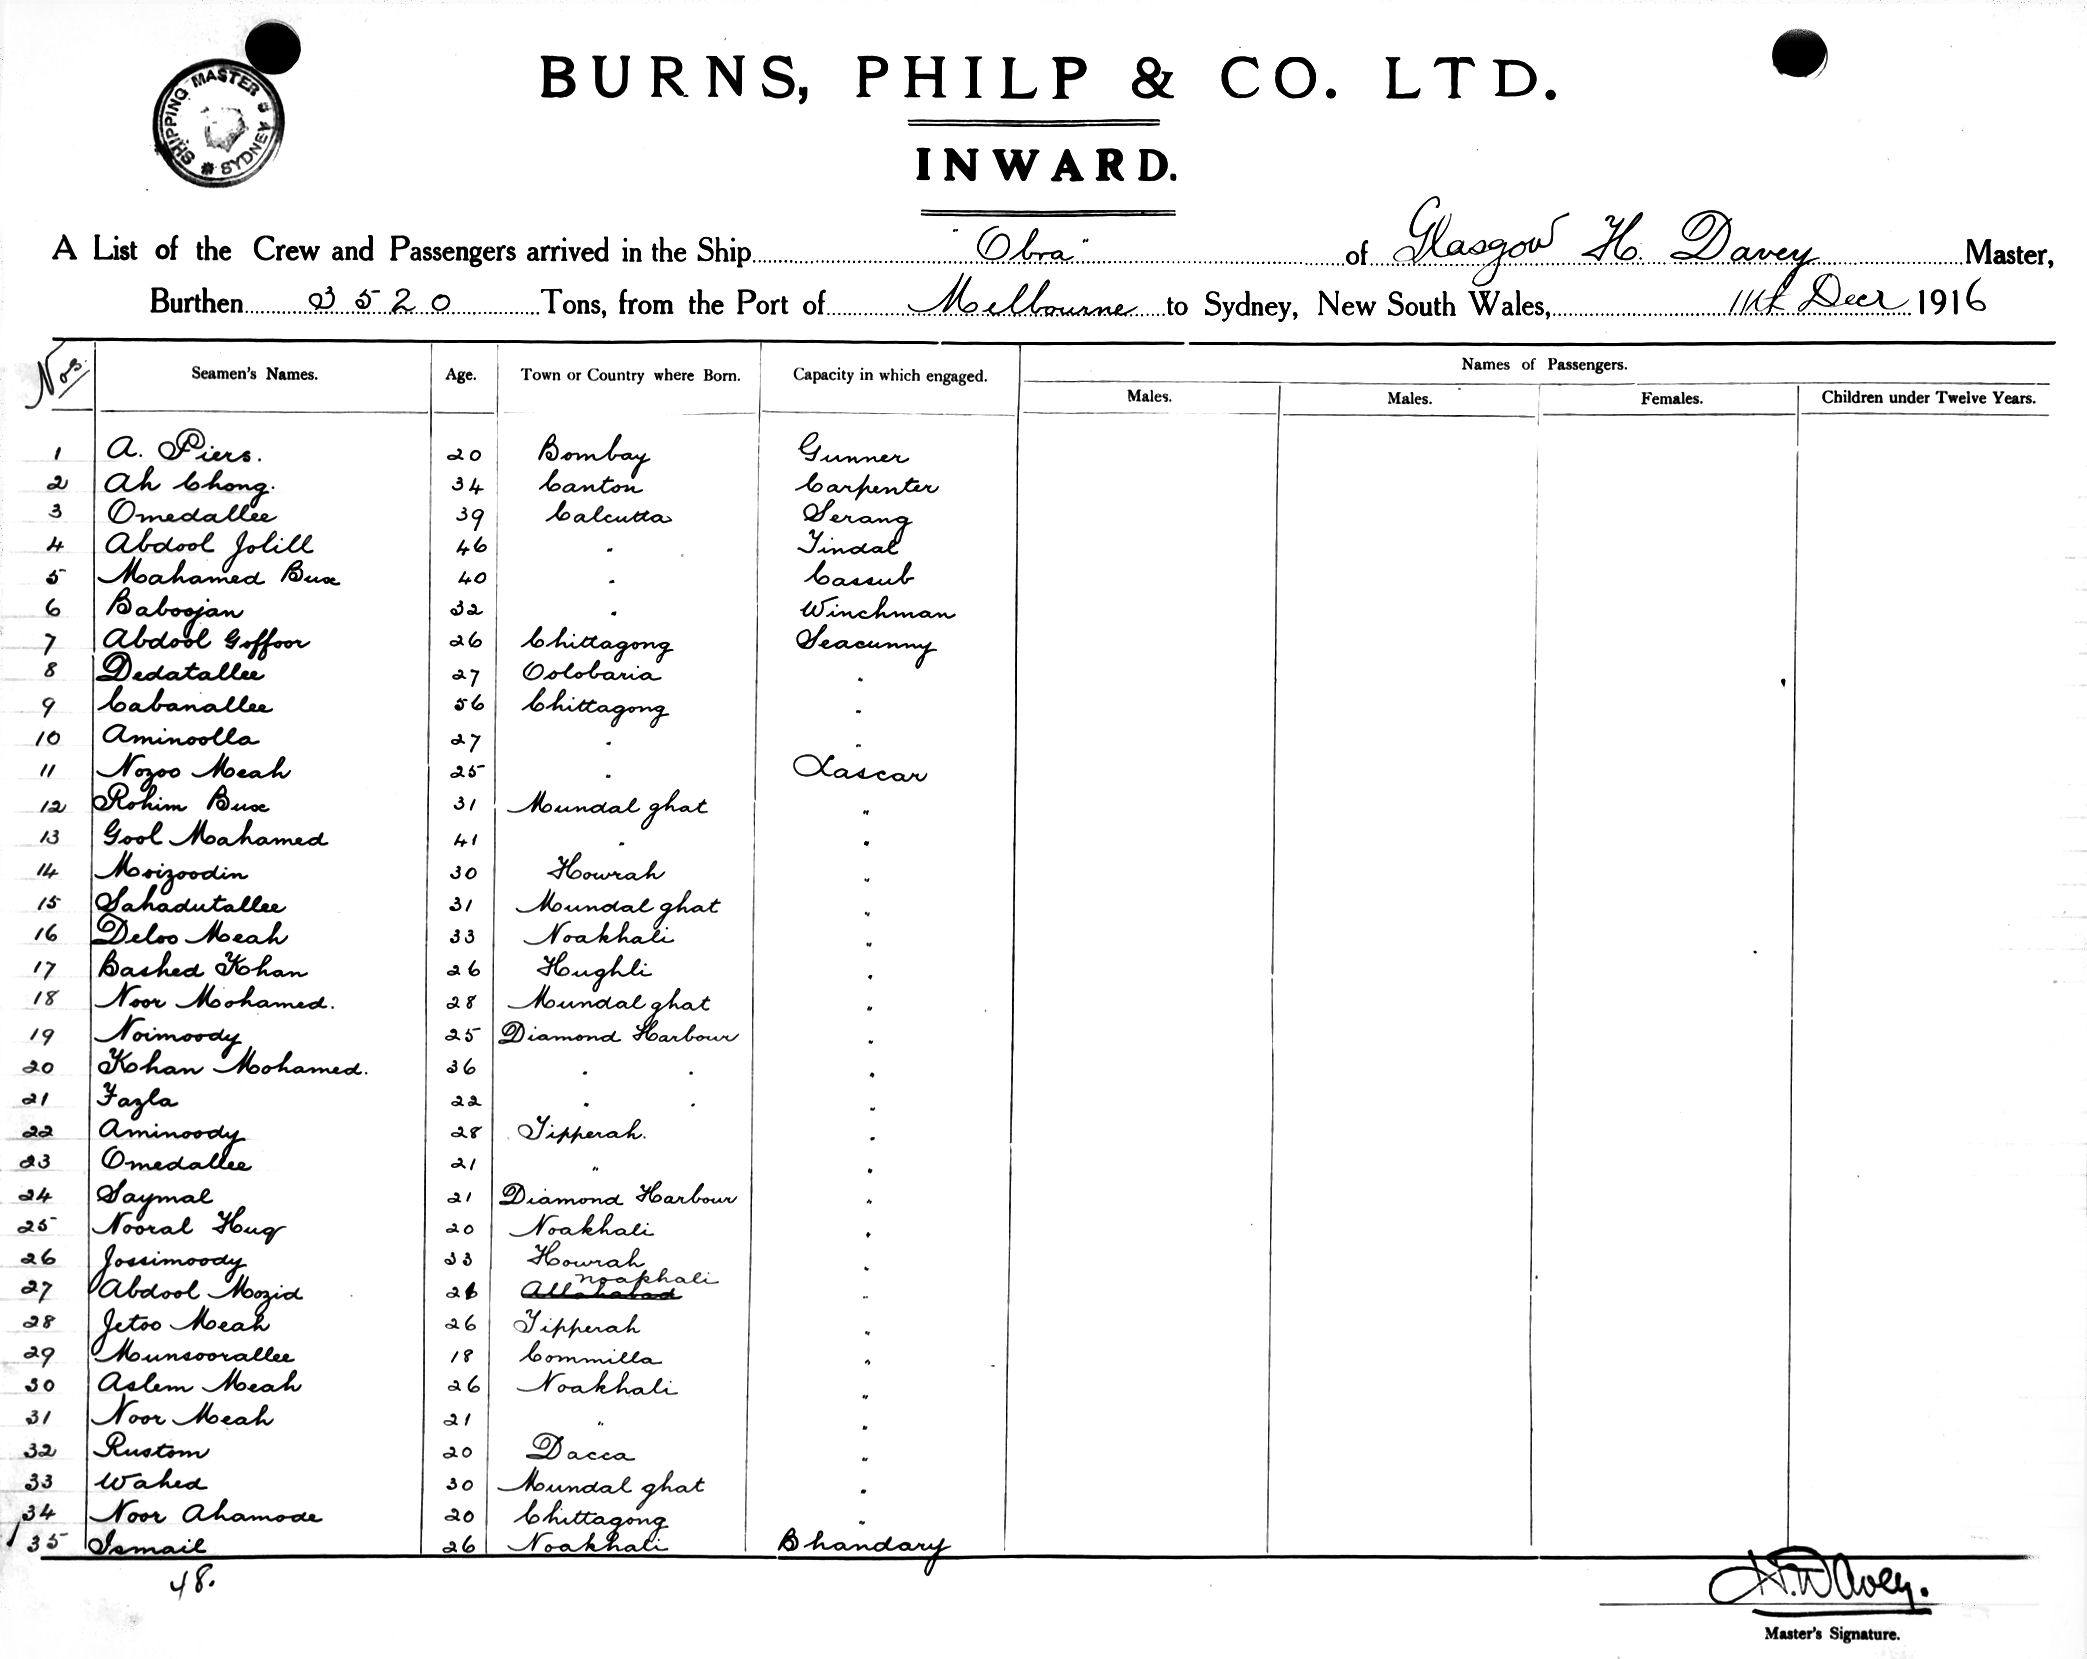 SHIPPING MASTER SYDNEY
BURNS, PHILP & CO. LTD.
INWARD.
A List of the Crew and Passengers arrived in the Ship "Obra" of Glasgow H. Davey Master,
Burthen 3520 Tons, from the Port of Melbourne to Sydney, New South Wales, 11th Decr 1916
Nos. Seamen's Names. Age. Town or Country where Born. Capacity in which engaged. Names of Passengers.
Males. Males. Females. Children under Twelve Years.
1 A. Piers. 20 Bombay Gunner
2 Ah Chong. 34 Canton Carpenter
3 Omedallee 39 Calcutta Serang
4 Abdool Jolill 46 " Tindal
5 Mahamed Bux 40 " Cassub
6 Baboojan 32 " Winchman
7 Abdool Goffoor 26 Chittagong Seacunny
8 Dedatallee 27 Oolobaria "
9 Cabanallee 56 Chittagong "
10 Aminoolla 27 " "
11 Nozoo Meah 25 " Lascar
12 Rohim Bux 31 Mundal ghat "
13 Gool Mahamed 41 " "
14 Moizoodin 30 Howrah "
15 Sahadutallee 31 Mundal ghat "
16 Deloo Meah 33 Noakhali "
17 Bashed Khan 26 Hughli "
18 Noor Mohamed. 28 Mundal ghat "
19 Noimoody 25 Diamond Harbour "
20 Khan Mohamed. 36 " " "
21 Fazla 22 " " "
22 Aminoody 28 Tipperah. "
23 Omedallee 21 " "
24 Saymal 21 Diamond Harbour "
25 Nooral Huq 20 Noakhali "
26 Jossimoody 33 Howrah "
27 Abdool Mozid 26 Allahabad Noakhali "
28 Jetoo Meah 26 Tipperah "
29 Munsoorallee 18 Commilla "
30 Aslem Meah 26 Noakhali "
31 Noor Meah 21 " "
32 Rustom 20 Dacca "
33 Wahed 30 Mundal ghat "
34 Noor Ahamode 20 Chittagong "
35 Ismail 26 Noakhali Bhandary
48.
H. Davey.
Master's Signature.